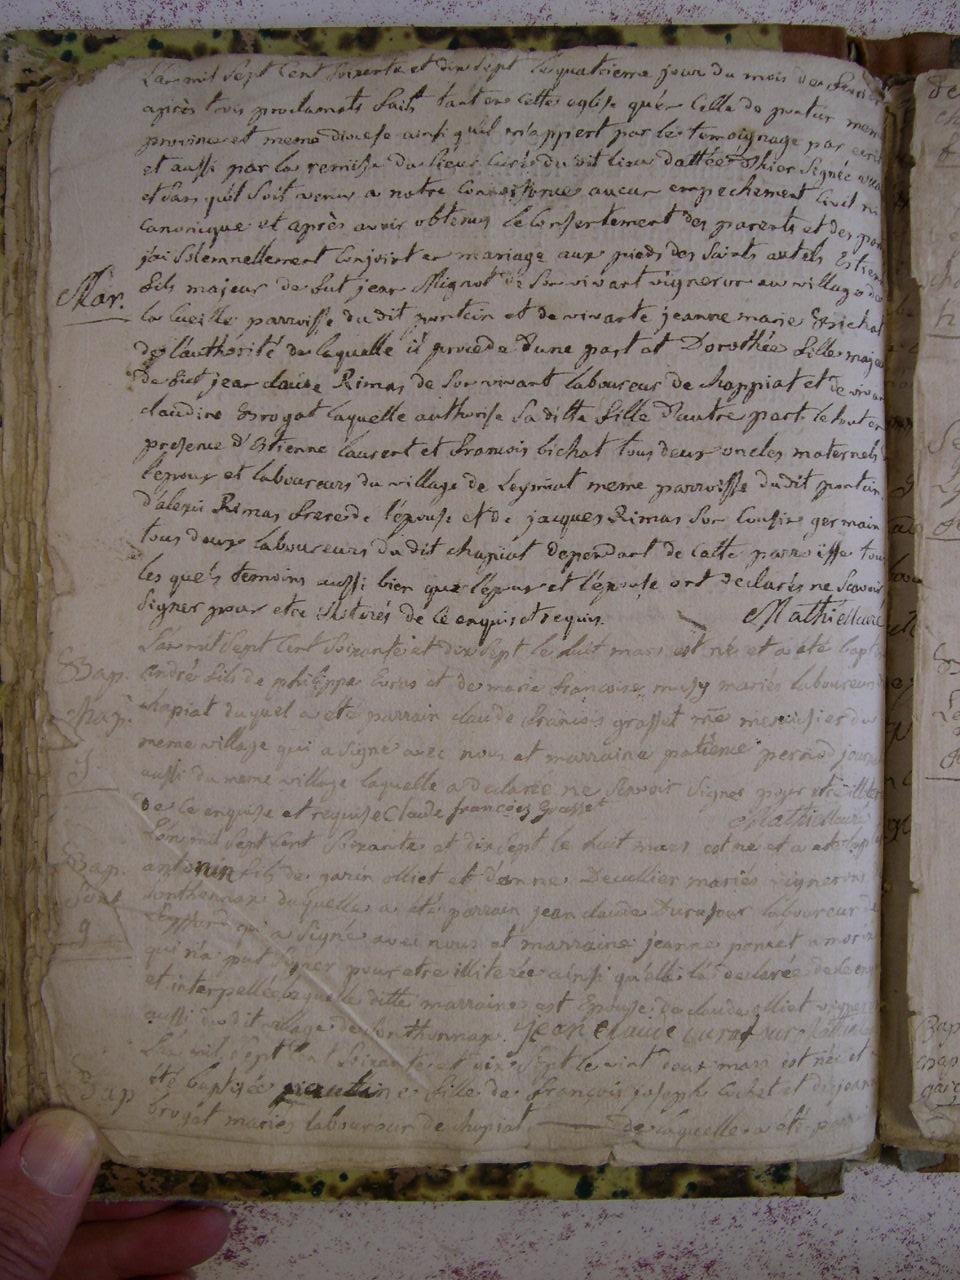 L'an mil sept cent soixante et dix sept le quatrieme jour du mois de
après trois proclamats faits tant en cette eglise qu'en celle de pontin meme
province et meme diocese ainsi qu'il m'appert par le temoignage par ecrit
et aussi par la remisse du sieur curé du dit lieu dattée d'hier signée
et sans qu'il soit venu a notre connoissance aucun empechement civil ni
canonique et après avoir obtenus le consentement des parents et des
j'ai solemnellement conjoint en mariage aux pieds des saints autels Estienne
fils majeur de fut jean Mignot de son vivant vigneron au village de
Mar.
la Cueille parroisse du dit pontin et de vivante jeanne marie Bichat
de l'authorité de laquelle il procede d'une part et Dorothée fille maje
de fut jean claude Rimas de son vivant laboureur de chappiat et de vivan
claudine Brogat laquelle authorise sa ditte fille d'autre part le tout en
presence d'Estienne laurent et francois bichat tous deux oncles maternels
l'epoux et laboureurs du village de Leymiat meme parroisse du dit pontin
d'alexis Rimas frere de l'épouse et de jacques Rimas son cousin germain
tous deux laboureurs du dit chapiat dependant de cette parroisse tous
les quels temoins aussi bien que l'epoux et l'épouse ont declarés ne scavoir
signer pour etre illiterés de ce enquis et requis. Mathieu curé
L'an mil sept cent soixante et dix sept le huit mars est né et a été bapt
Bap.
andré fils de philippe et de marie francoise mariés laboureurs
Chap.
chapiat duquel a été parrain claude françois grasset me menuisier du
meme village qui a signé avec nous et marraine patience pernod
aussi du meme village laquelle a declarée ne scavoir signer pour etre illiter
de ce enquise et requise Claude françois Grasset
Mathieu curé
L'an mil sept cent soixante et dix sept le huit mars est né et a été
Bap.
antonin fils de garin olliet et d'anne Decullier mariés vignerons
Sont
sonthonnax duquelle a été parrain jean claude Durafour laboureur de
9
qui a signé avec nous et marraine jeanne poncet
qui n'a put signer pour etre illiterée ainsi qu'elle l'a declarée de ce enq
et interpellée laquelle ditte marraine est epouse de claude olliet vigneron
aussi du dit village de sonthonnax. jean Claude durafour
L'an mil sept cent soixante et dix sept le vint deux mars est née et
Bap
été baptisée pauline fille de françois joseph Cochet et de jeanne
brogat mariés laboureur de chapiat de laquelle a été